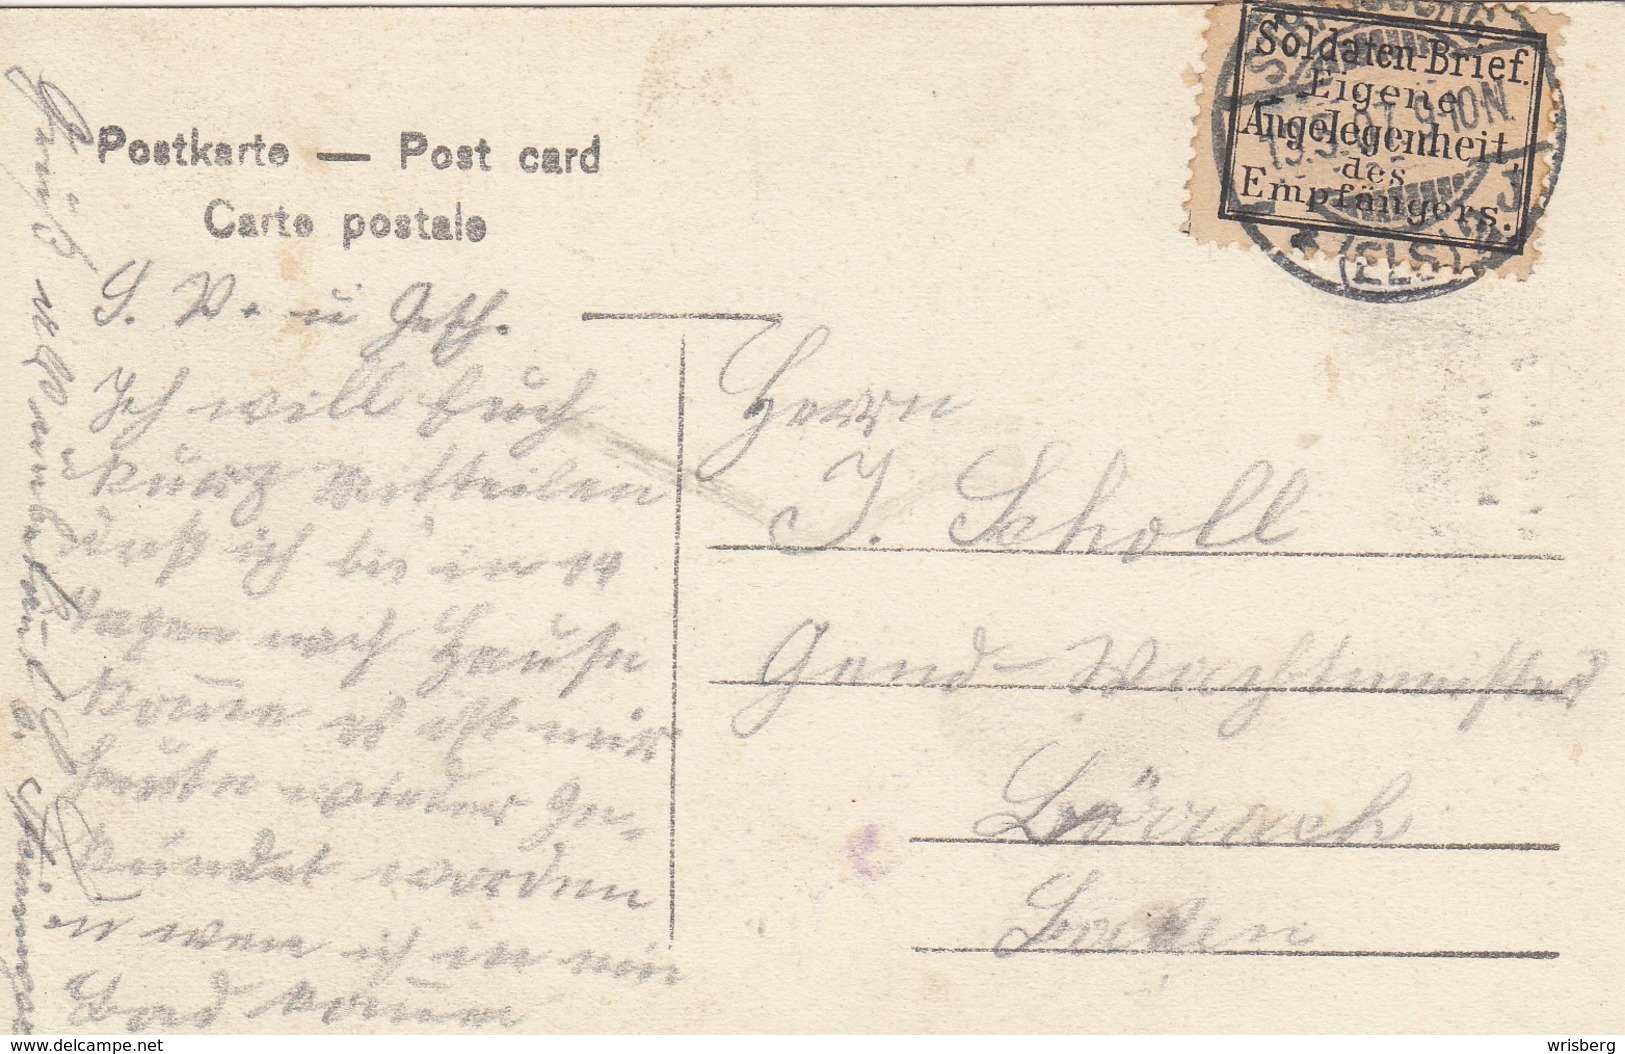 Postkarte — Post card
Carte postale
Soldaten-Brief.
Eigene
Angelegenheit
des
Empfängers.
9-10N.
(ELS)
S. W. u Gesch.
Ich will Euch
kurz Mitteilen
daß ich bis in 14
Tagen nach Hause
komme es ist mir
heute wieder Ge-
kündet worden
u wen ich in ein
Bad komm
Gruß
Herrn
J. Scholl
Gend-Wachtmeister
Lörrach
Baden
delcampe.net
wrisberg